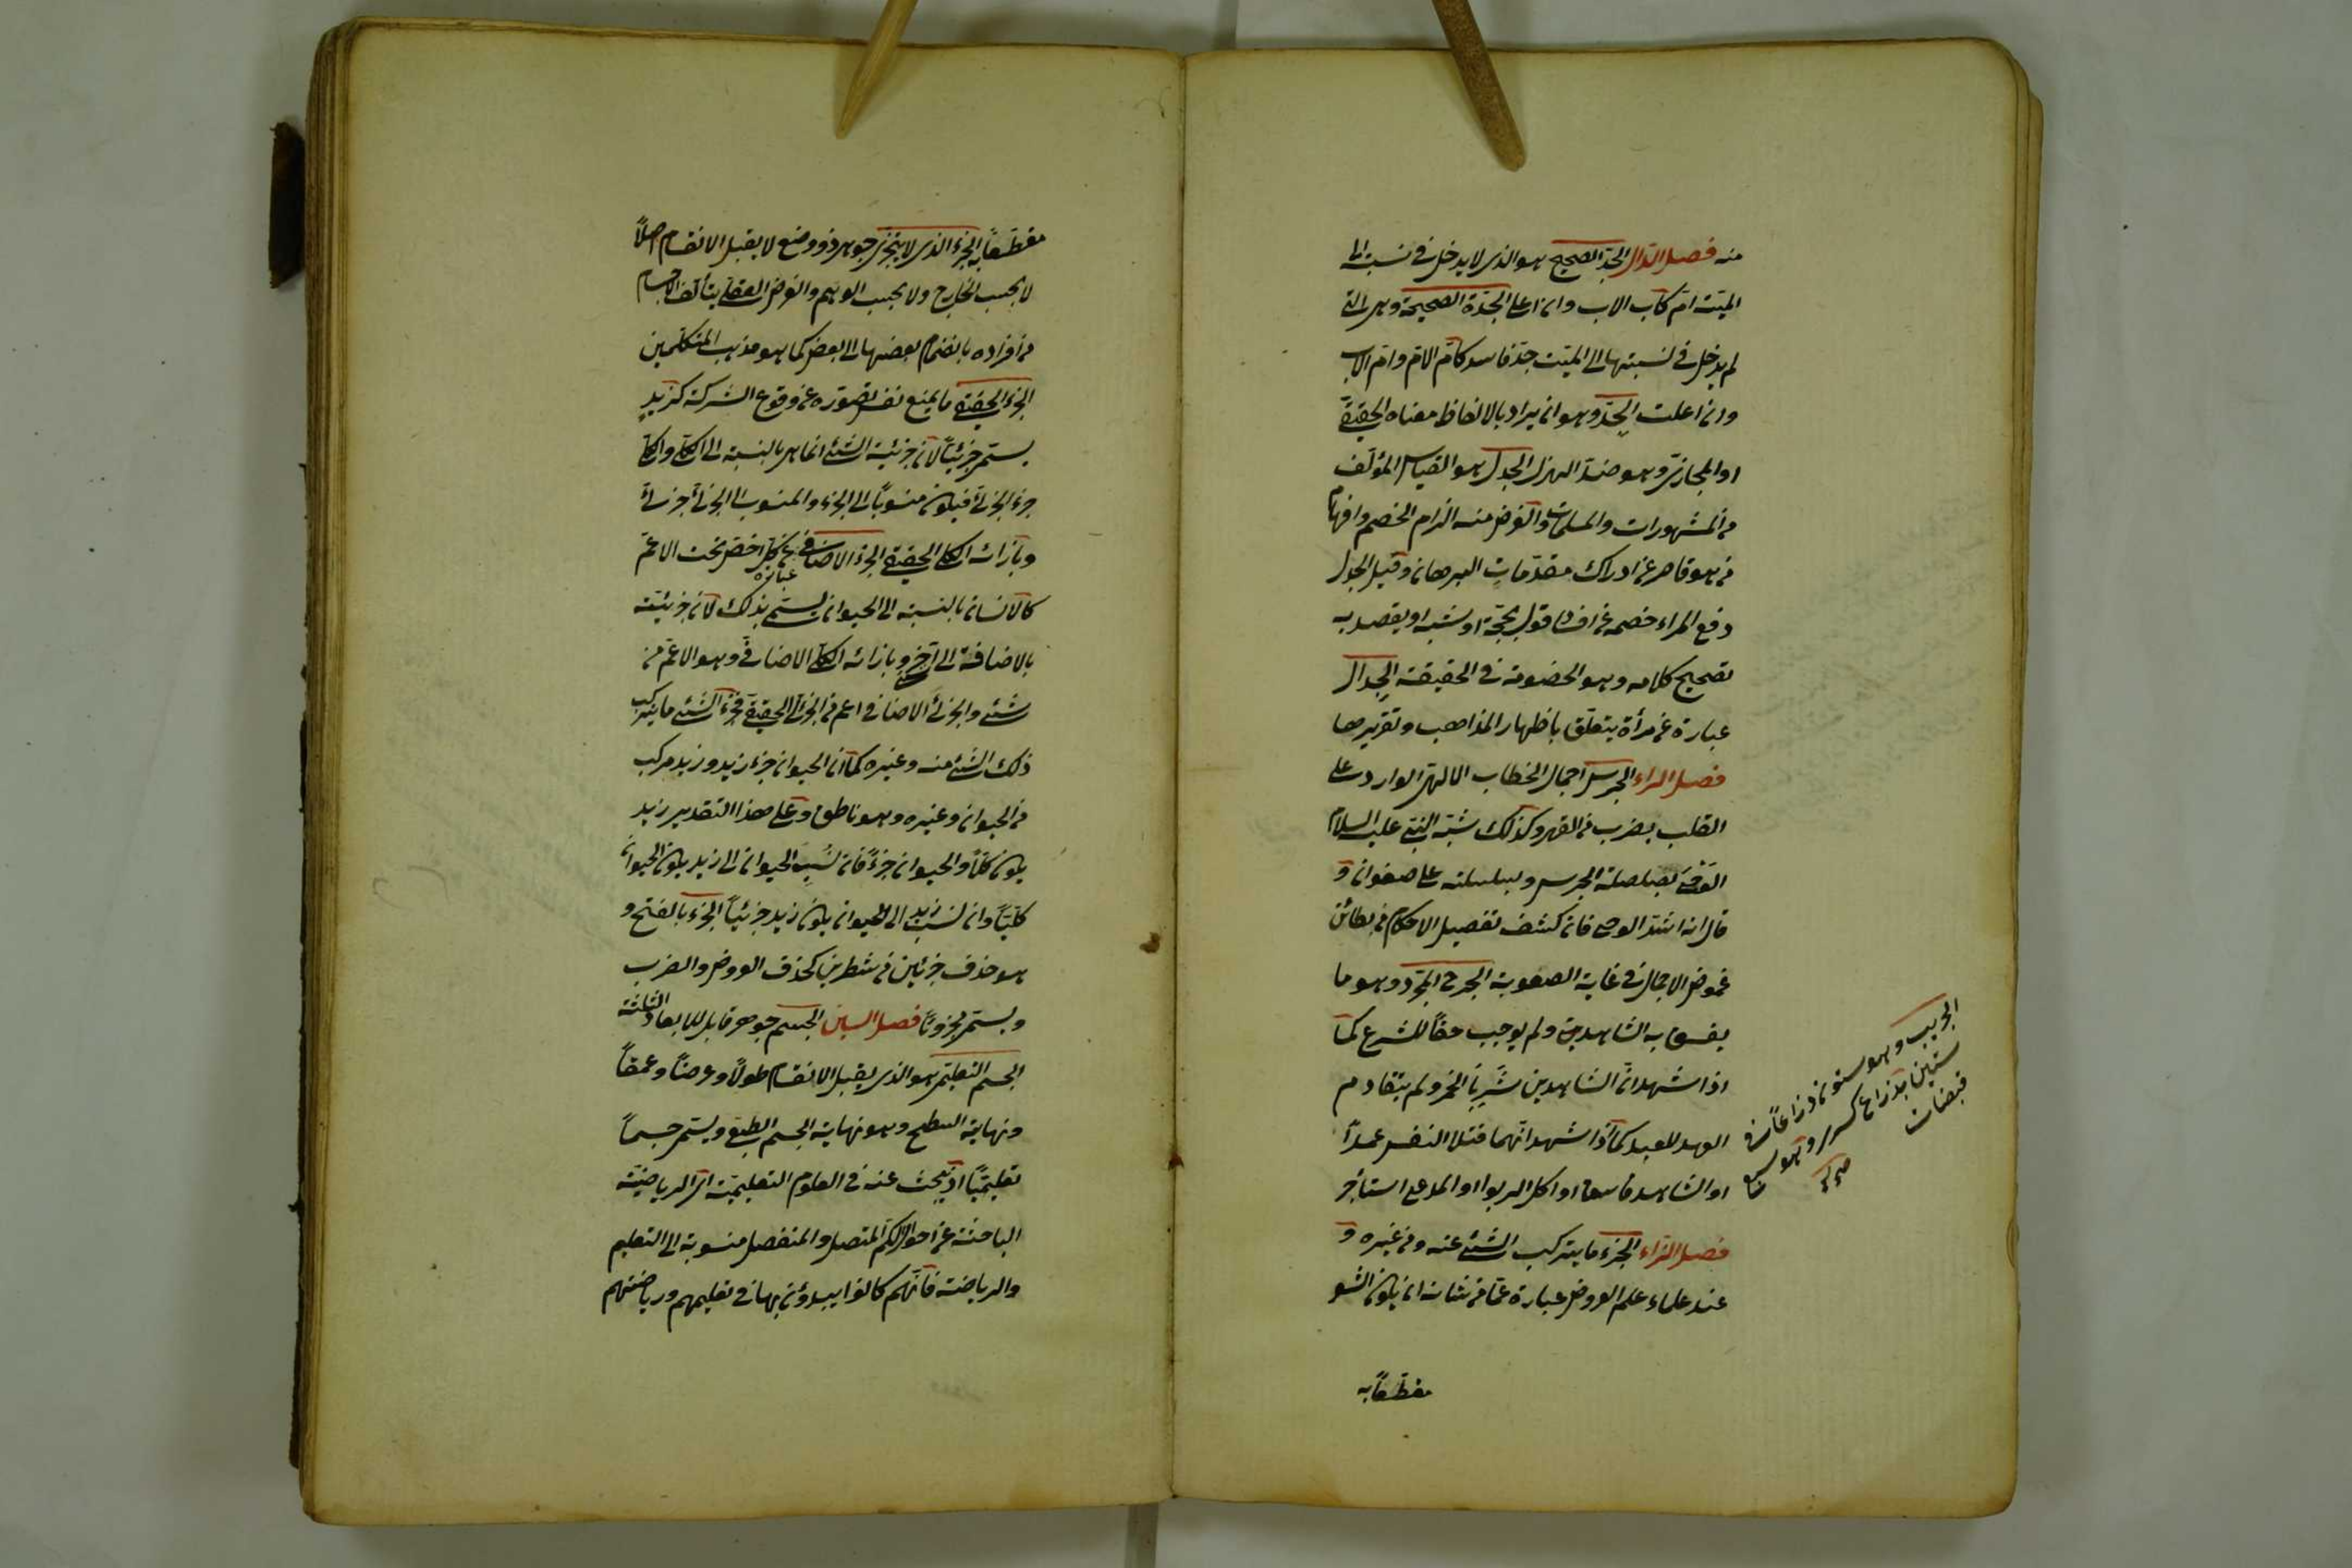 منه فصل الدال الجدّ الصحيح هو الذى لا يدخل فى نسبته الى
الميّت امّ كاب الاب وان اعلى الجدّة الصحيحة وهى التى
لم يدخل فى نسبتها الى الميّت جدّ فاسد كامّ الامّ وامّ الاب
وان اعلت الجِدّ وهو ان يراد بالالفاظ معناه الحقيقىّ
او المجازىّ وهو ضدّ الهزل الجدل هو القياس المؤلّف
من المشهورات والمسلمات والغرض منه الزام الخصم وافهام
من هو قاصر عن ادراك مقدّمات البرهان وقيل الجدل
دفع المراء خصمه عن افساد قول بحجّة او شبه او يقصد به
تصحيح كلامه وهو الخصومة فى الحقيقة الجِدال
عبارة عن مرأة يتعلّق باظهار المذاهب وتقريرها
فصل الراء الجرس اجمال الخطاب الالهىّ الوارد على
القلب بضرب من القهر وكذلك شبّه النبىّ عليه السلام
الوَحْىَ بصلصلة الجرس وبسلسلته على صفوان و
قال انه اشدّ الوحى فان كشف تفصيل الاحكام من بطائن
غموض الاجمال فى غاية الصعوبة الجرح المجرّد وهو ما
يفسق به الشاهدين ولم يوجب حقّاً للشرع كما
اذا شهد انّ الشاهدين شَرِبا الخمر ولم يتقادم
العهد للعبد كما اذا شهدا انّهما قتلا النفس عمداً
او الشاهد فاسق او اكل الربوا او المدعى استأجر
فصل الزاء الجزء ما يتركب الشئ عنه ومن غيره و
عند علماء علم العروض عبارة عمّا من شانه ان يكون الشعر
مقطّعاً به
الجريب وهو ستون ذراعاً فى
ستين بذراع كسرى وهو سبع
قبضات
صح
مقطّعاً به الجزء الذى لا يتجزى جوهر ذو وضع لا يقبل الانقسام اصلاً
لا بحسب الخارج ولا بحسب الوهم والفرض العقلى يتألف الاجسام
من افراده بانضمام بعضها الى البعض كما هو مذهب المتكلّمين
الجزء الحقيقى ما يمنع نفس تصوّره عن وقوع الشركة كزيد
يستمى جزئيّاً لان جزئيّة الشئ انما هى بالنسبة الى الكلّى والكلّى
جزء الجزئى فيكون منسوباً الى الجزء والمنسوب الى الجزئى جزئى
وبازائه الكلى الحقيقى الجزء الاضافى عبارة عن كلّ اخصّ تحت الاعمّ
كالانسان بالنسبة الى الحيوان يستمى بذلك لان جزئيّته
بالاضافة الى آخر وبازائه الكلّى الاضافىّ وهو الاعمّ من
شئ والجزئى الاضافى اعم من الجزئى الحقيقىّ فجزء الشئ ما يتركب
ذلك الشئ منه وغيره كما انّ الحيوان جزء زيد وزيد مركب
من الحيوان وغيره وهو ناطق وعلى هذا التقدير زيد
يكون كلّاً والحيوان جزءً فان نُسِبَ الحيوان الى زيد يكون الحيوان
كلّيّاً وان نسب زيد الى الحيوان يكون زيد جزئيّاً الجَزء بالفتح و
هو حذف جزئين من شطرين كحذف العروض والضرب
ويستمى مجزوّاً فصل السين الجسم جوهر قابل للابعاد الثلثة
الجسم التعليمى هو الذى يقبل الانقسام طولاً وعرضاً وعمقاً
ونهايته السطح وهو نهاية الجسم الطبيعى ويستمى جسماً
تعليميّاً اذ يبحث عنه فى العلوم التعليميّة اى الرياضيّة
الباحثة عن احوال الكم المتصل والمنفصل منسوبة الى التعليم
والرياضة فانّهم كانوا يبدؤن بها فى تعليمهم ورياضتهم